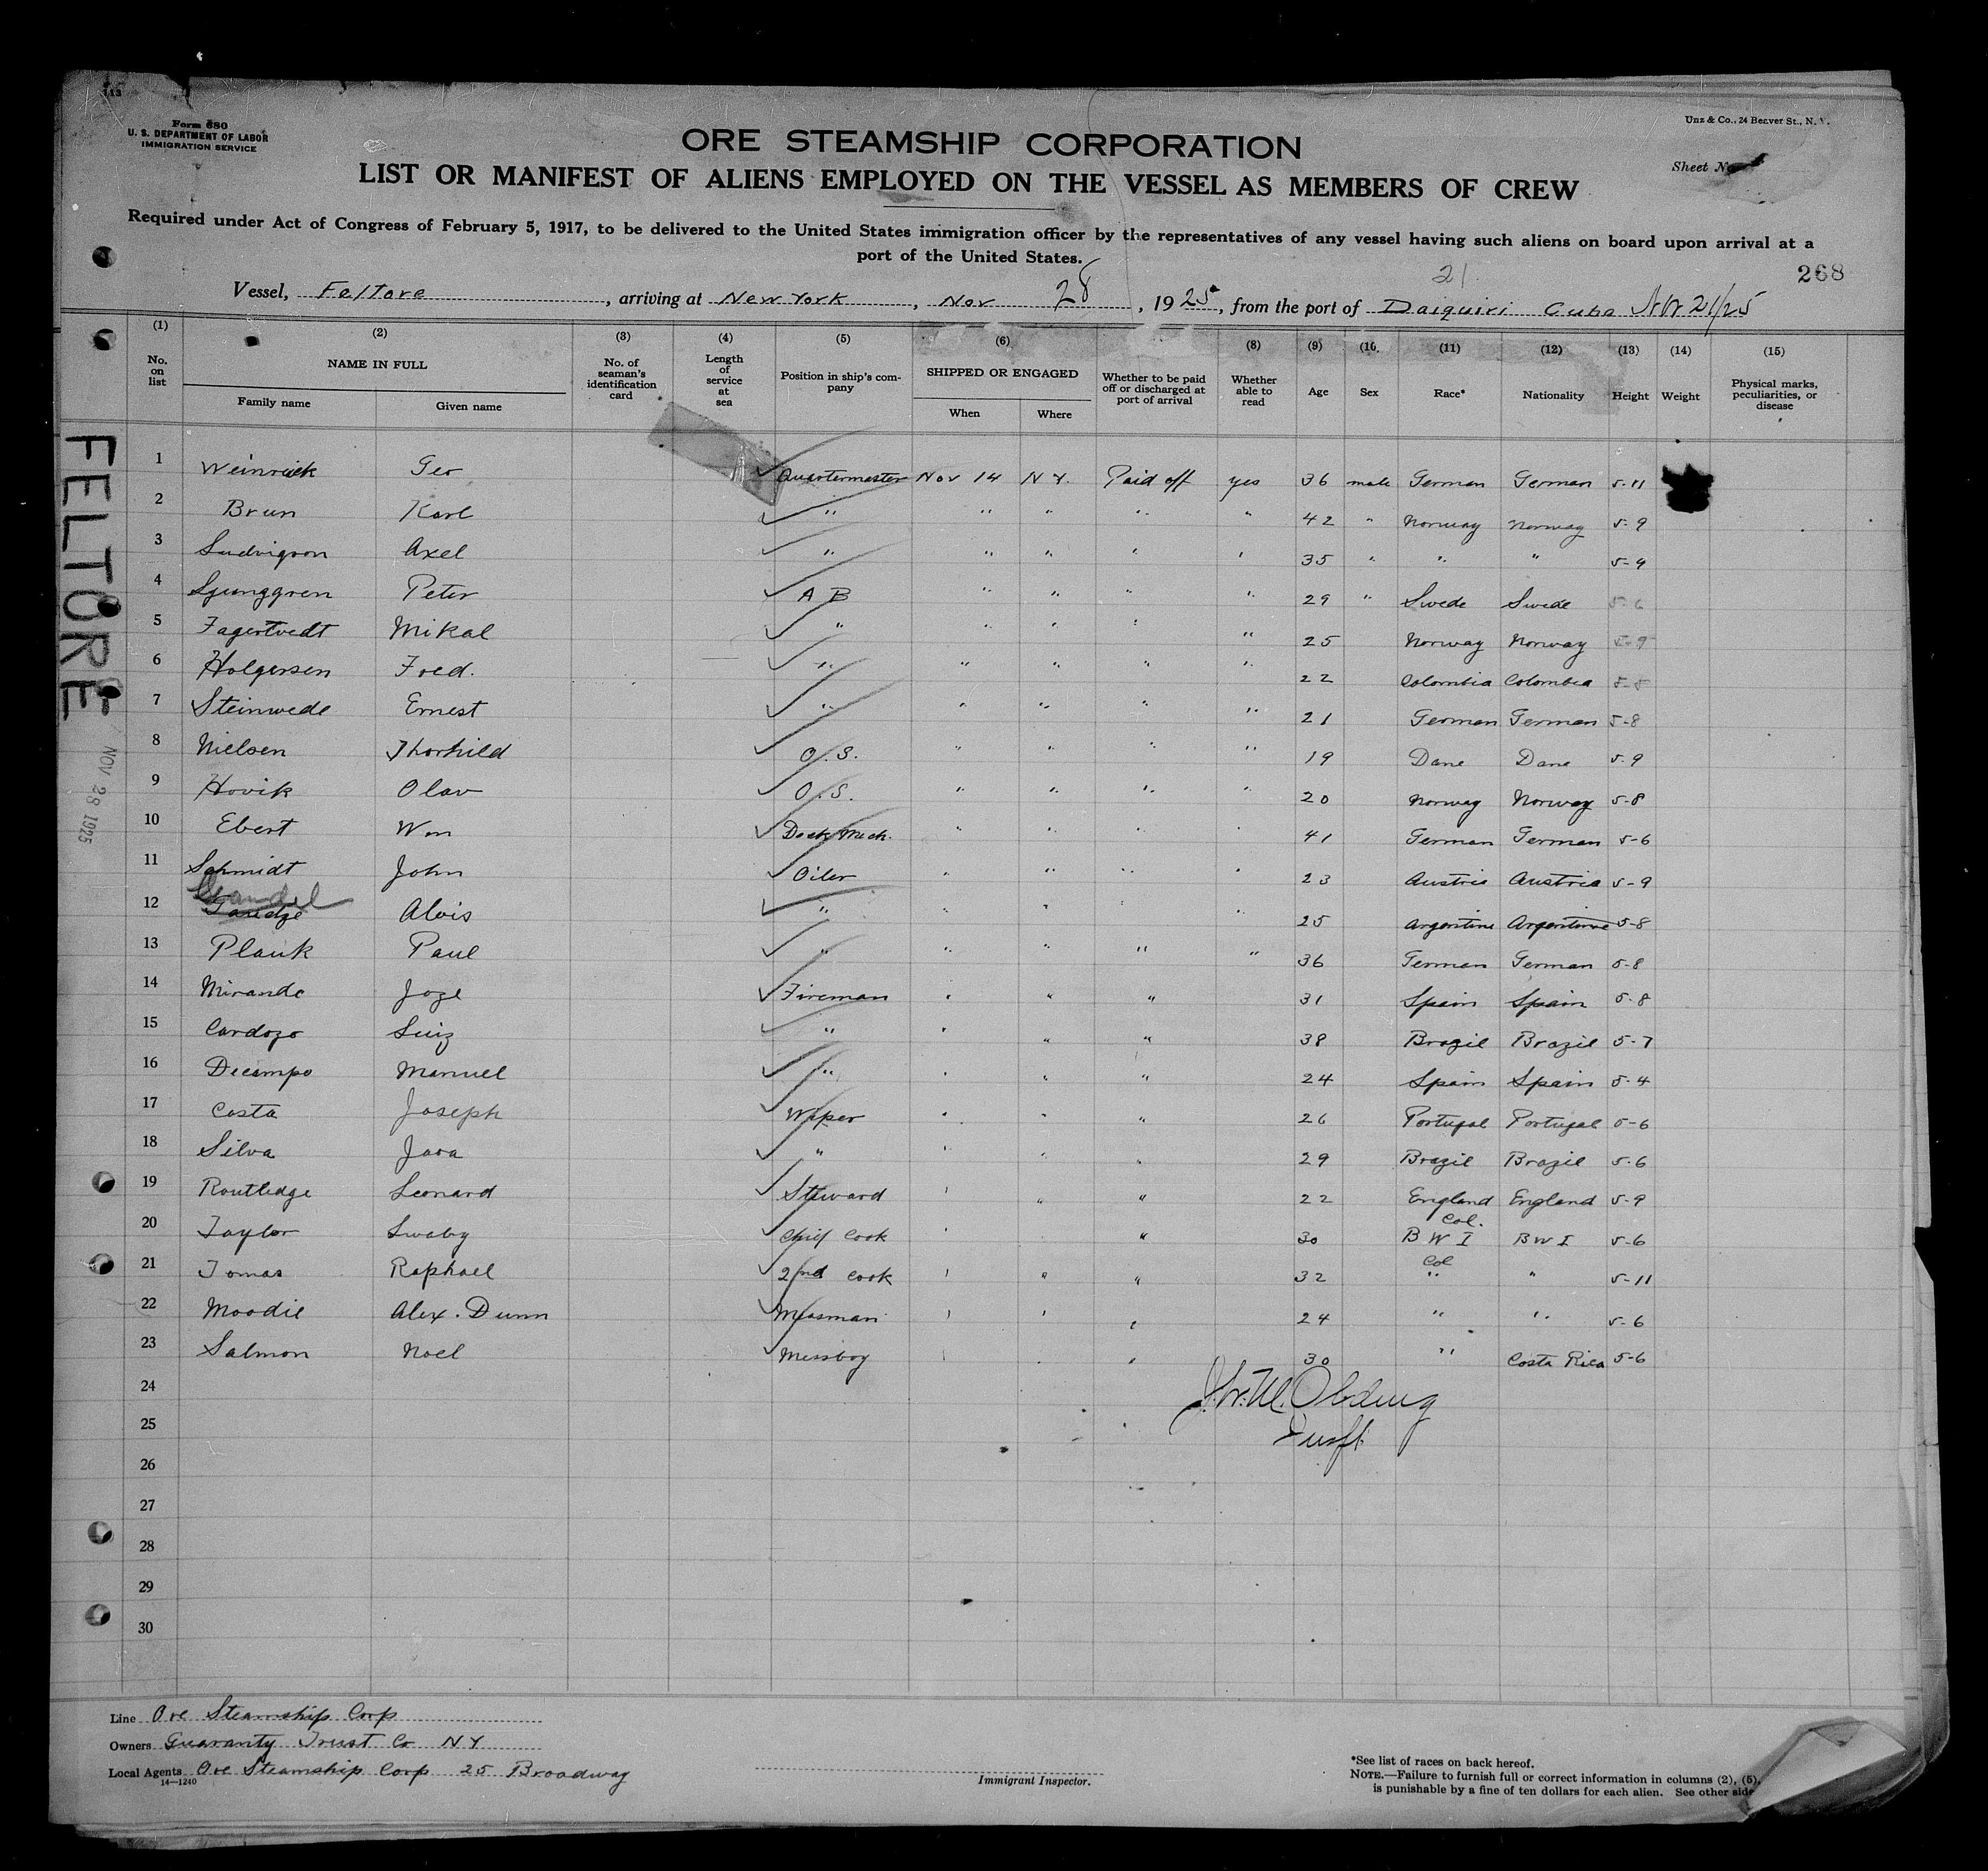 113
Form 680
U. S. DEPARTMENT OF LABOR
IMMIGRATION SERVICE
Unz & Co., 24 Beaver St., N. Y.
ORE STEAMSHIP CORPORATION
Sheet No.
LIST OR MANIFEST OF ALIENS EMPLOYED ON THE VESSEL AS MEMBERS OF CREW
Required under Act of Congress of February 5, 1917, to be delivered to the United States immigration officer by the representatives of any vessel having such aliens on board upon arrival at a
port of the United States.
21
268
Vessel, Feltore, arriving at New York, Nov 28, 1925, from the port of Daiquiri Cuba Nov 21/25
(1) (2) (3) (4) (5) (6) (8) (9) (10) (11) (12) (13) (14) (15)
No. on list NAME IN FULL Family name Given name No. of seaman's identification card Length of service at sea Position in ship's company SHIPPED OR ENGAGED When Where Whether to be paid off or discharged at port of arrival Whether able to read Age Sex Race* Nationality Height Weight Physical marks, peculiarities, or disease
1 Weinrick Geo Quartermaster Nov 14 N Y. Paid off yes 36 male German German 5-11
2 Brun Karl " " " " " 42 " Norway Norway 5-9
3 Ludvigson Axel " " " " " 35 " " " 5-9
4 Ljunggren Peter A B " " " " 29 " Swede Swede 5-6
5 Fagertvedt Mikal " " " " " 25 Norway Norway 5-9
6 Holgersen Fred. " " " " " 22 Colombia Colombia 5-5
7 Steinwede Ernest " " " " " 21 German German 5-8
8 Nielsen Thorkild O.S. " " " " 19 Dane Dane 5-9
9 Hovik Olav O.S. " " " " 20 Norway Norway 5-8
10 Ebert Wm Deck Mech. " " " " 41 German German 5-6
11 Schmidt John Oiler " " " " 23 Austria Austria 5-9
12 Alois " " " " " 25 Argentine Argentine 5-8
13 Plauk Paul " " " " " 36 German German 5-8
14 Mirande Joze Fireman " " " 31 Spain Spain 5-8
15 Cardozo Luiz " " " " 38 Brazil Brazil 5-7
16 Decampo Manuel " " " " 24 Spain Spain 5-4
17 Costa Joseph Wiper " " " 26 Portugal Portugal 5-6
18 Silva Jara " " " " 29 Brazil Brazil 5-6
19 Routledge Leonard Steward " " " 22 England England 5-9
20 Taylor Swaby Chief Cook " " 30 Col. B W I B W I 5-6
21 Tomas Raphael 2nd Cook " " " 32 Col " " 5-11
22 Moodie Alex. Dunn Messman " " " 24 " " 5-6
23 Salmon Noel Messboy " " " 30 " Costa Rica 5-6
24
25
26
27
28
29
30
FELTORE
NOV 28 1925
Line Ore Steamship Corp
Owners Guaranty Trust Co NY
Local Agents Ore Steamship Corp 25 Broadway
14—1240
Immigrant Inspector.
*See list of races on back hereof.
NOTE.—Failure to furnish full or correct information in columns (2), (5),
is punishable by a fine of ten dollars for each alien. See other side